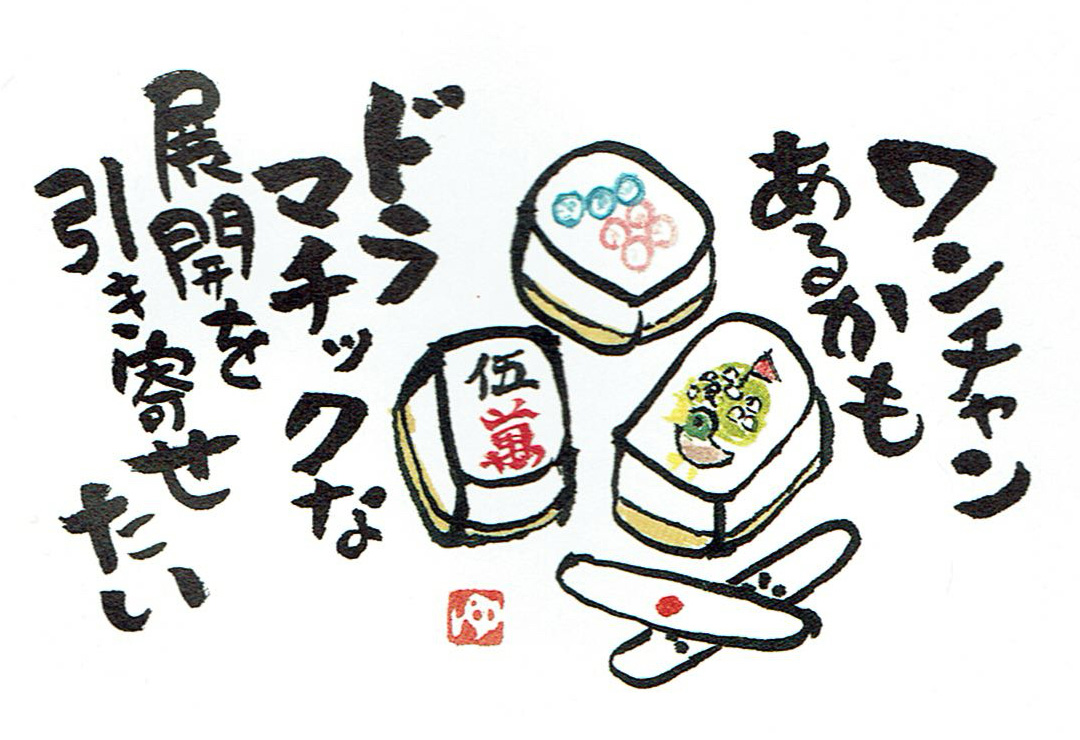 ワンチャン
あるかも
ドラ
マチックな
展開を
引き寄せ
たい
伍
萬